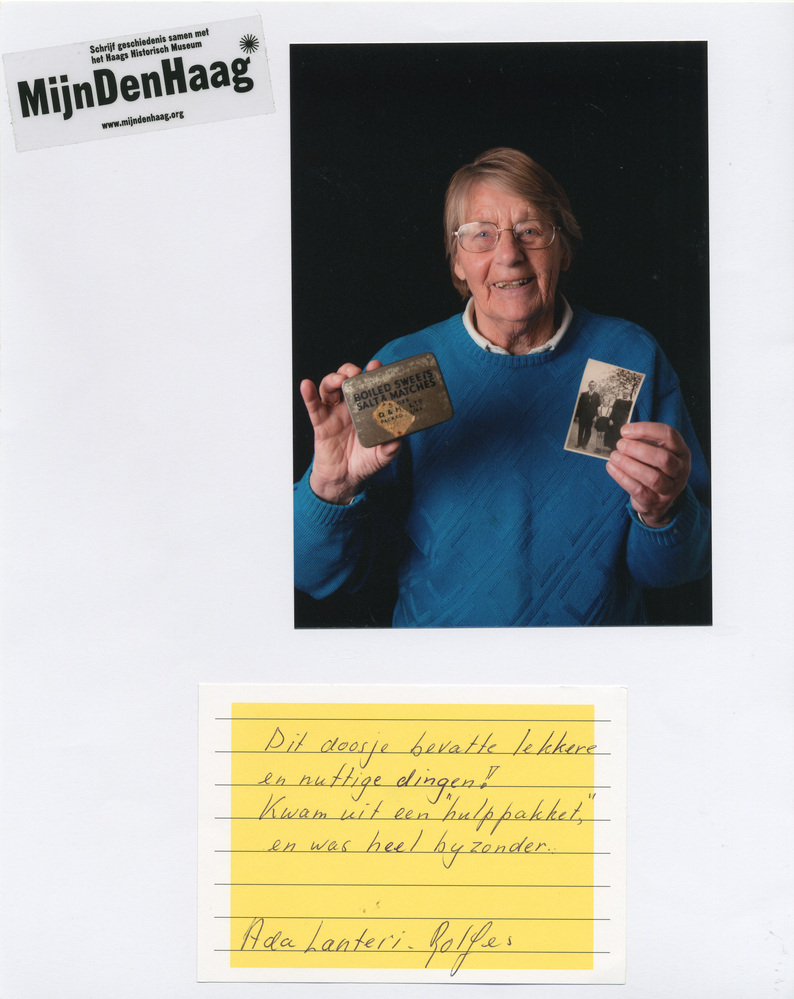 Schrijf geschiedenis samen met
het Haags Historisch Museum
MijnDenHaag
www.mijndenhaag.org
BOILED SWEETS
SALT & MATCHES
Dit doosje bevatte lekkere
en nuttige dingen!
Kwam uit een "hulppakket,"
en was heel byzonder.
Ada Lanteri - Rolfes